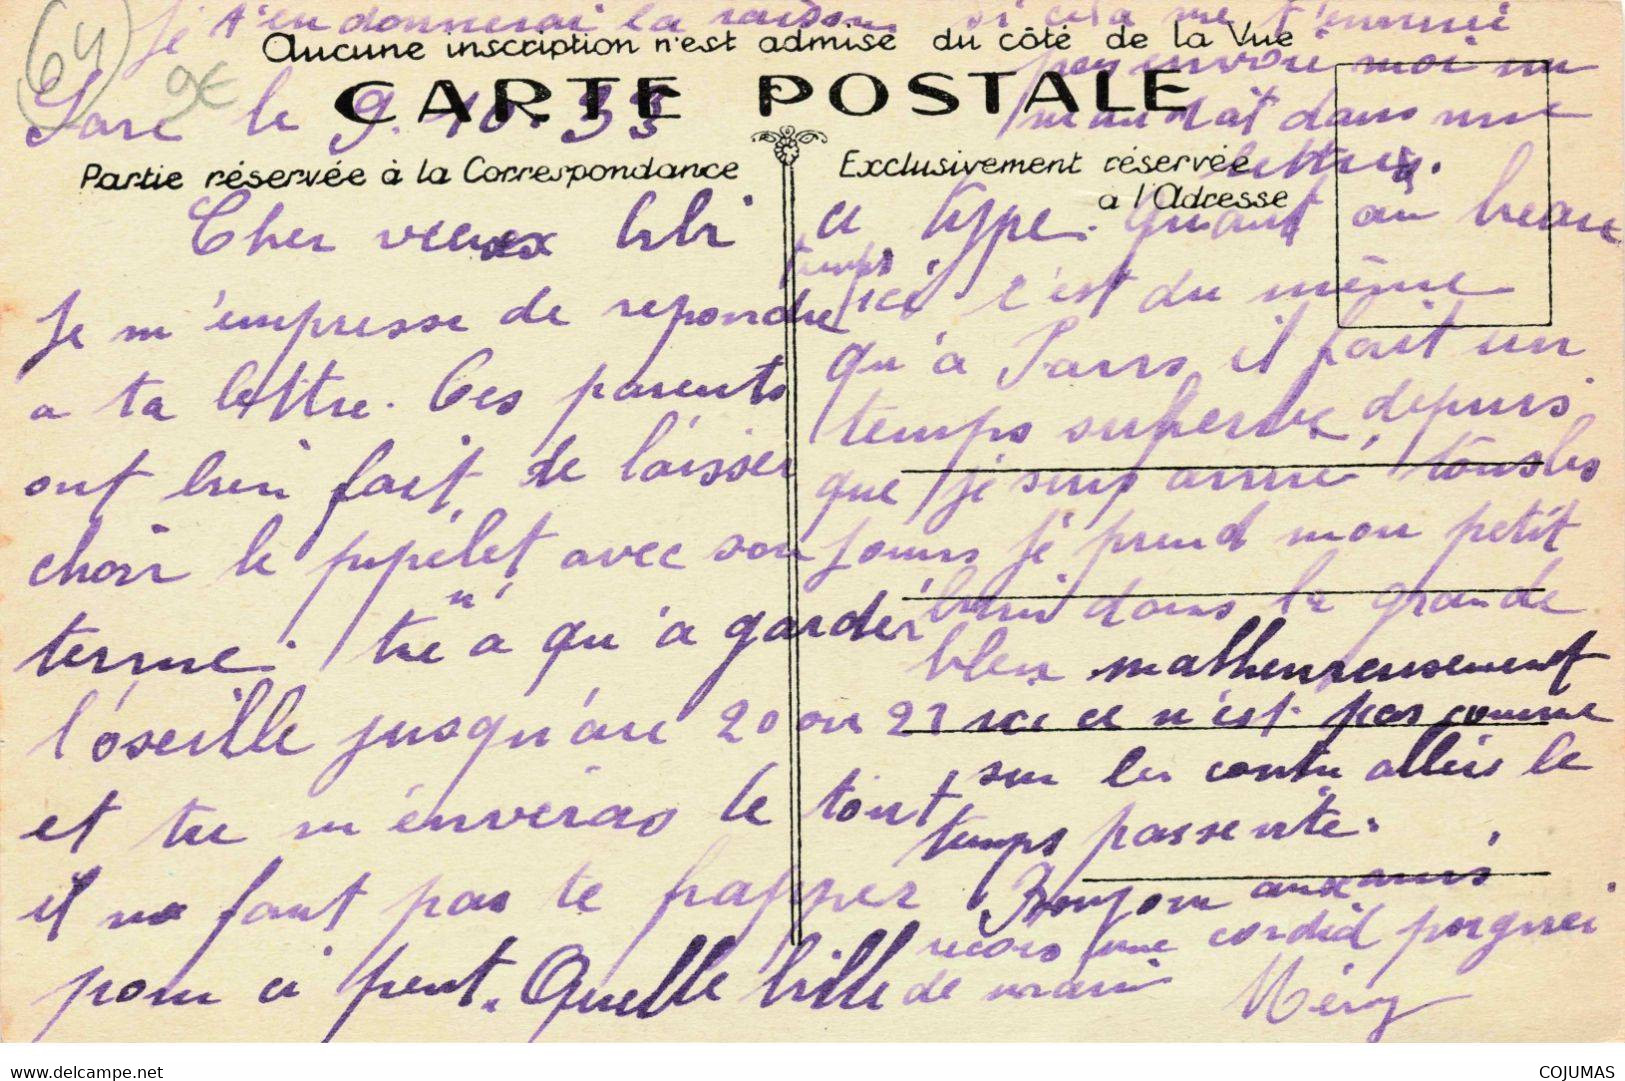 je t'en donnerai la raison. si cela ne t'ennui
pas envoie moi un
mandat dans une
lettre.
64
9€
Aucune inscription n'est admise du côté de la Vue
CARTE POSTALE
Sare le 9.10.33
Partie réservée à la Correspondance
Exclusivement réservée
a l'Adresse
Cher vieux bibi
Je m'empresse de repondre
a ta lettre. Ces parents
ont bien fait de laisser
choir le pipélet avec son
terme. tu n'a qu'a garder
l'oseille jusqu'au 20 ou 21
et tu m'enveras le tout,
il ne faut pas te frapper
pour ci peut. Quelle bille
ce type. Quant au beau
temps ici c'est du même
qu'a Paris, il fait un
temps superbe depuis
que je suis arrivé tous les
jours je prend mon petit
bain dans la grande
bleu malheureusement
ici ce n'est pas comme
sur les contre allées le
temps passe vite.
Bonjour aux amis
reçois une cordial poignei
de main Méry
COJUMAS
https://www.delcampe.net